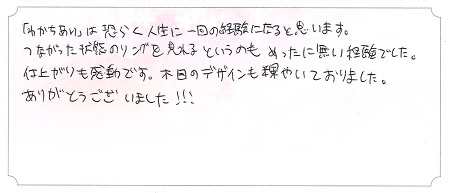 「わかちあい」は恐らく人生に一回の経験になると思います。
つながった状態のリングを見れるというのも めったに無い経験でした。
仕上がりも感動です。木目のデザインも輝やいておりました。
ありがとうございました!!!